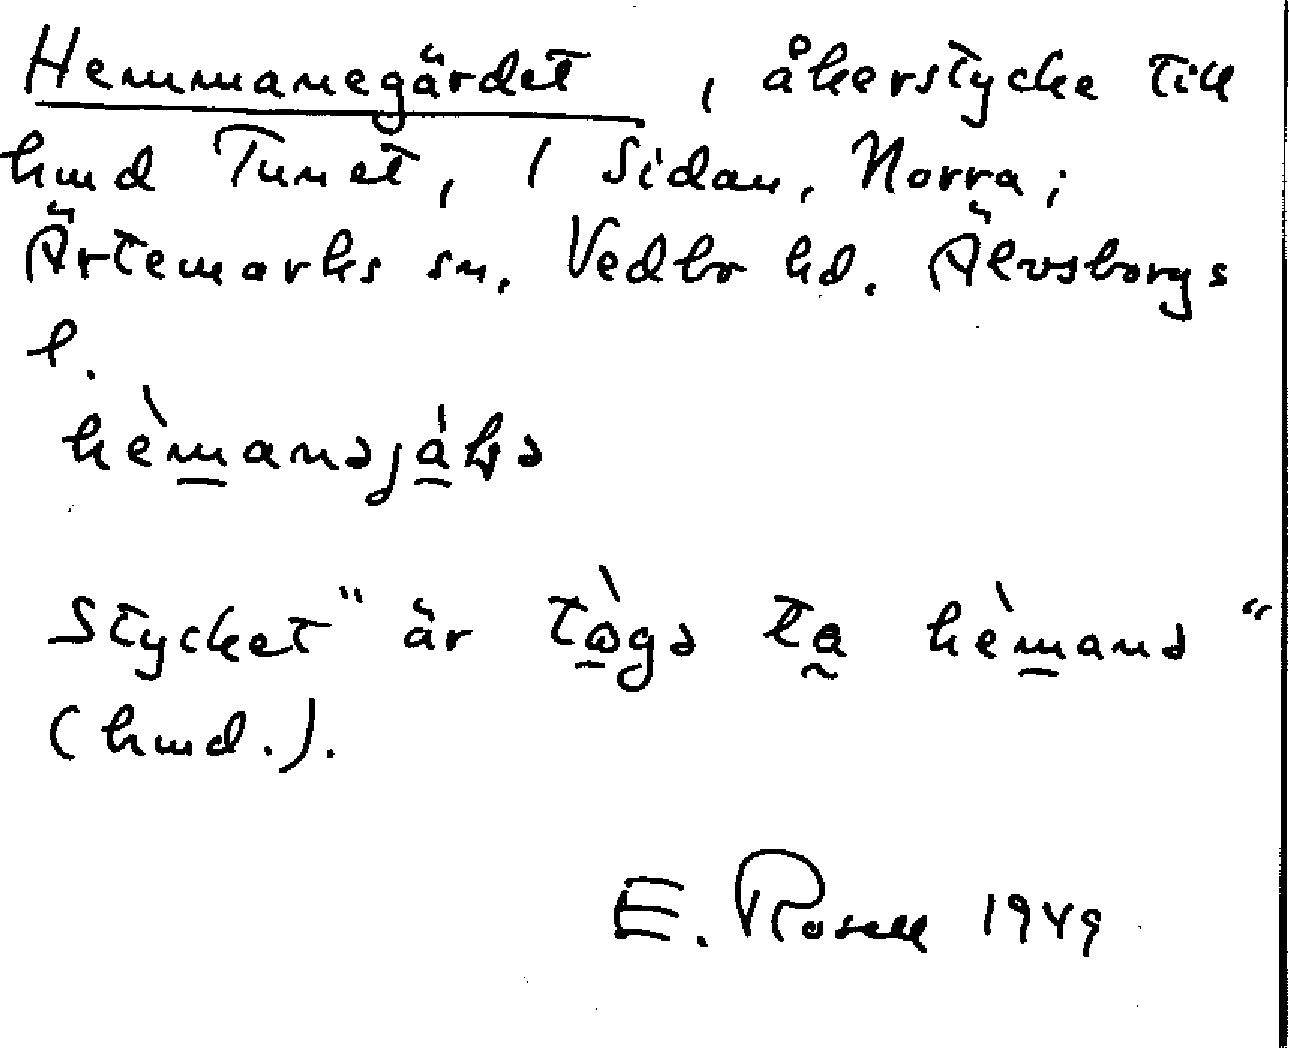 Hemmanegärdet, åkerstycke till
hmd Tunet, 1 Sidan, Norra;
Ärtemarks sn. Vedbo hd. Älvsborgs
l.
hèmanə
Stycket "är tògə ta hèmanə"
(hmd.).
E. Rosell 1949